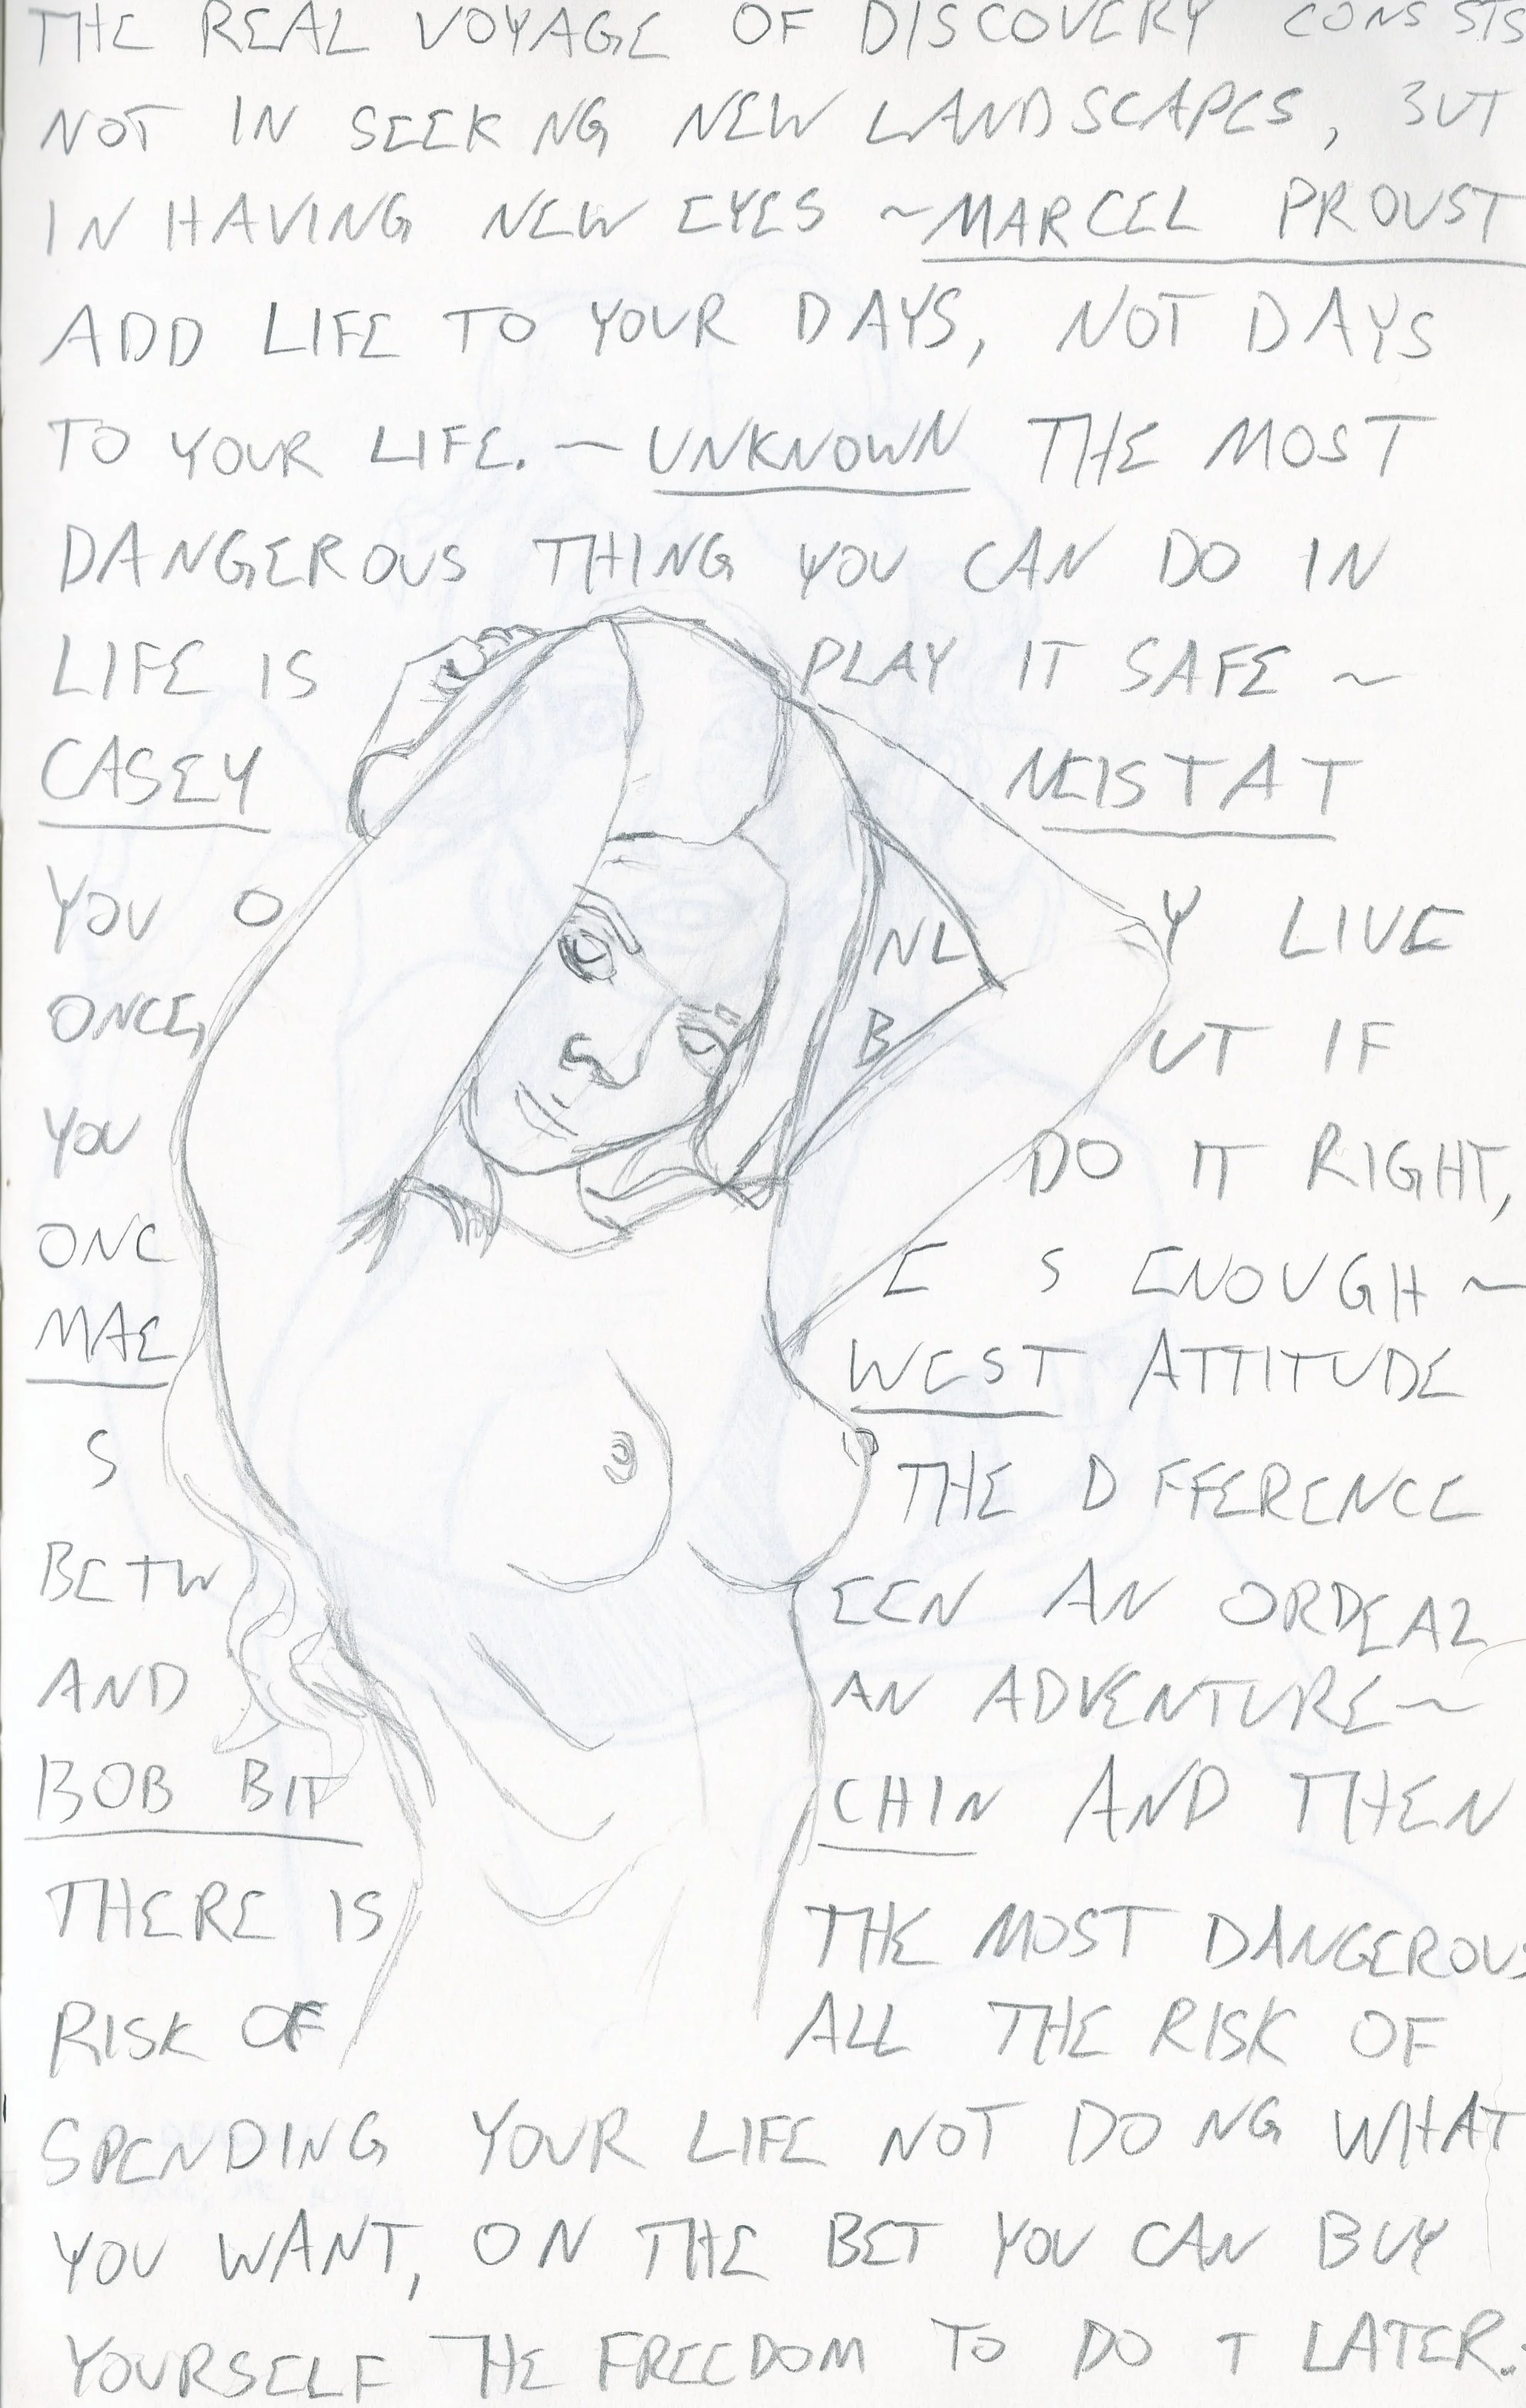 THE REAL VOYAGE OF DISCOVERY CONS STS
NOT IN SEEK NG NEW LANDSCAPES, BUT
IN HAVING NEW EYES ~ MARCEL PROUST
ADD LIFE TO YOUR DAYS, NOT DAYS
TO YOUR LIFE. ~ UNKNOWN THE MOST
DANGEROUS THING YOU CAN DO IN
LIFE IS PLAY IT SAFE ~
CASEY NEISTAT
YOU O NL Y LIVE
ONCE, B UT IF
YOU DO IT RIGHT,
ONC E S ENOUGH ~
MAE WEST ATTITUDE
S THE D FFERENCE
BETW EEN AN ORDEAL
AND AN ADVENTURE ~
BOB BIT CHIN AND THEN
THERE IS THE MOST DANGEROUS
RISK OF ALL THE RISK OF
SPENDING YOUR LIFE NOT DO NG WHAT
YOU WANT, ON THE BET YOU CAN BUY
YOURSELF THE FREEDOM TO DO T LATER.